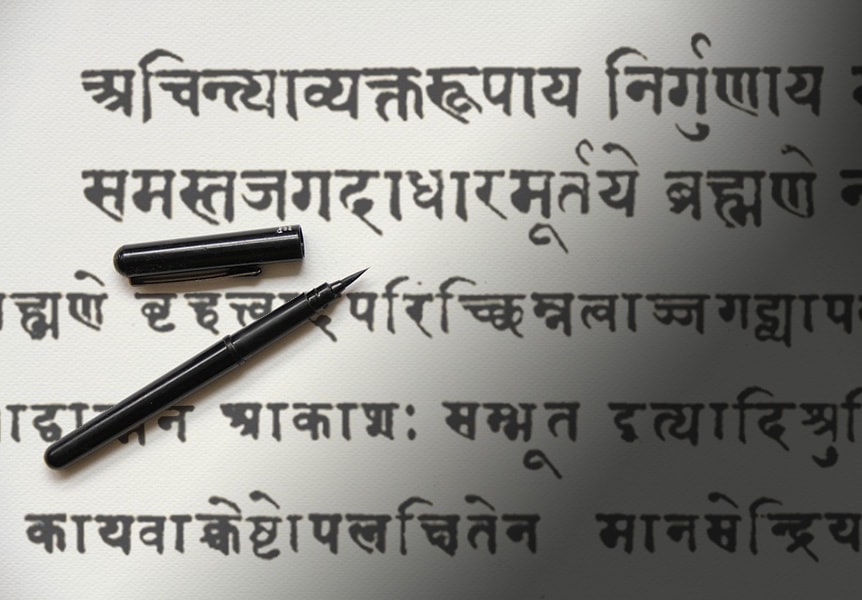 अचिन्त्याव्यक्तरूपाय निर्गुणाय
समस्तजगदाधारमूर्तये ब्रह्मणे
परिच्छिन्नत्वाज्जगद्व्याप
आकाशः सम्भूत इत्यादिश्रु
कायवाक्चेष्टोपलक्षितेन मानसेन्द्रिय